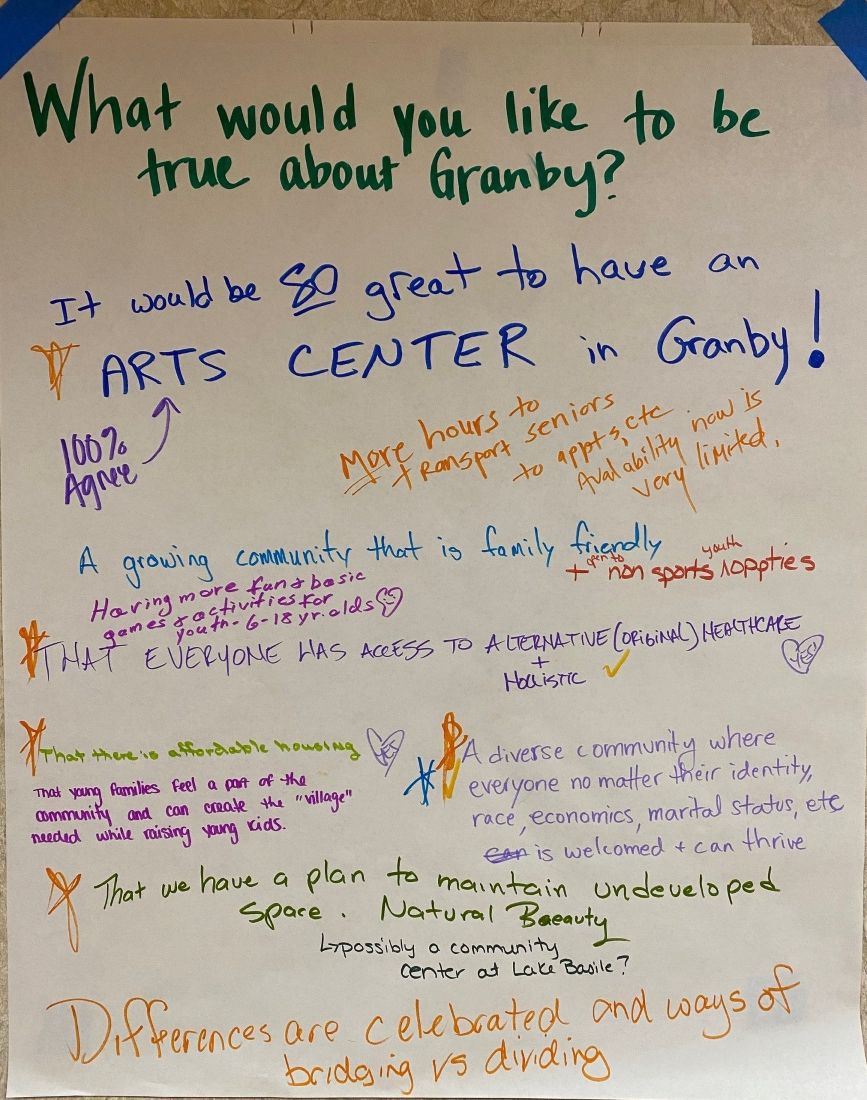 What would you like to be
true about Granby?
It would be SO great to have an
ARTS CENTER in Granby!
100%
Agree
More hours to
transport seniors
to appts, etc
Availability now is
very limited.
A growing community that is family friendly
+ open to non sports youth oppties
Having more fun & basic
games & activities for
youth - 6-18 yr. olds
THAT EVERYONE HAS ACCESS TO ALTERNATIVE (ORIGINAL) HEALTHCARE
+
HOLLISTIC
YES!
That there is affordable housing
YES
That young families feel a part of the
community and can create the "village"
needed while raising young kids.
A diverse community where
everyone no matter their identity,
race, economics, marital status, etc
can is welcomed + can thrive
That we have a plan to maintain undeveloped
space. Natural Baeauty
↳possibly a community
center at Lake Basile?
Differences are celebrated and ways of
bridging vs dividing